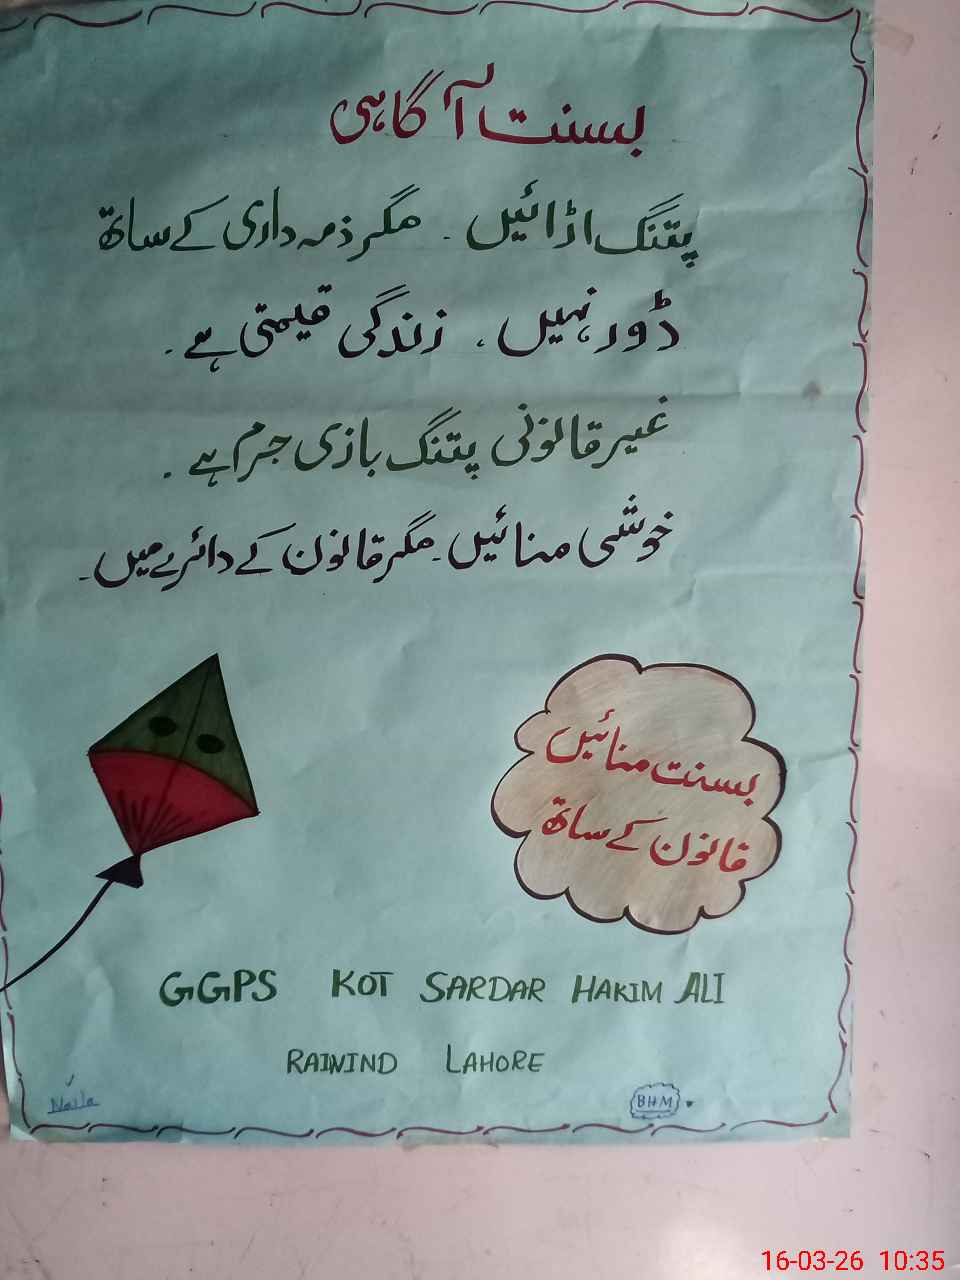 بسنت آگاہی
پتنگ اڑائیں ۔ مگر ذمہ داری کے ساتھ
ڈور نہیں ، زندگی قیمتی ہے ۔
غیر قانونی پتنگ بازی جرم ہے ۔
خوشی منائیں ۔ مگر قانون کے دائرے میں ۔
بسنت منائیں
قانون کے ساتھ
GGPS KOT SARDAR HAKIM ALI
RAIWIND LAHORE
Naila
BHM
16-03-26 10:35